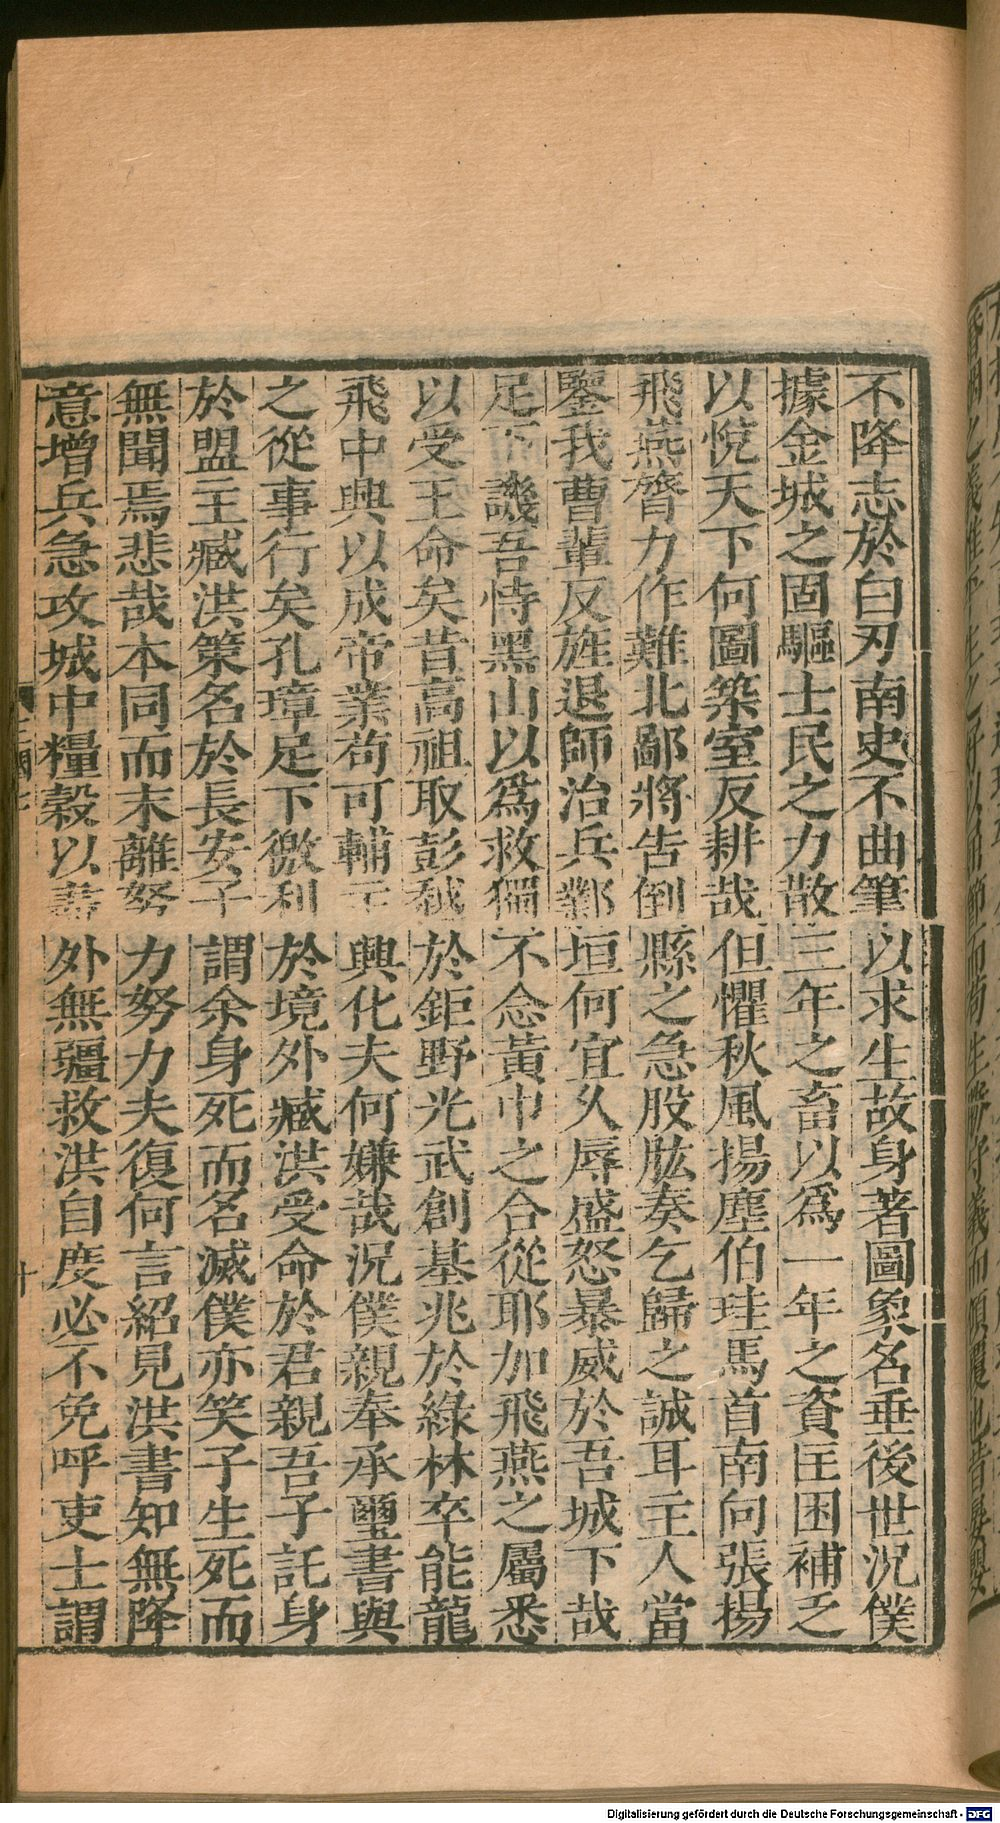 不降志於白刃南史不曲筆以求生故身著圖象名垂後世況僕
據金城之固驅士民之力散三年之畜以爲一年之資匡困補乏
以悅天下何圖築室反耕哉但懼秋風揚塵伯珪馬首南向張揚
飛燕膂力作難北鄙將告倒縣之急股肱奏乞歸之誠耳主人當
鑒我曹輩反旌退師治兵鄴垣何宜久辱盛怒暴威於吾城下哉
足下譏吾恃黑山以爲救獨不念黃巾之合從耶加飛燕之屬悉
以受王命矣昔高祖取彭越於鉅野光武創基兆於綠林卒能龍
飛中興以成帝業苟可輔主興化夫何嫌哉況僕親奉承璽書與
之從事行矣孔璋足下徼利於境外臧洪受命於君親吾子託身
於盟主臧洪策名於長安子謂余身死而名滅僕亦笑子生死而
無聞焉悲哉本同而末離努力努力夫復何言紹見洪書知無降
意增兵急攻城中糧穀以盡外無疆救洪自度必不免呼吏士謂
十
Digitalisierung gefördert durch die Deutsche Forschungsgemeinschaft - DFG